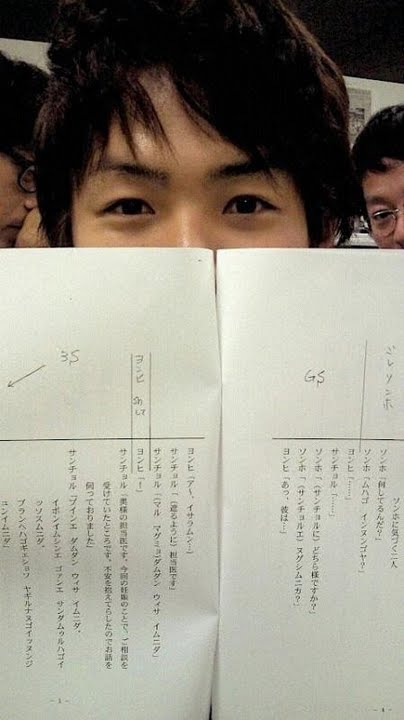 GS
ソンホに気づく二人
ソンホ「何してるんだ？」
ソンホ「ムハゴ インヌンゴヤ？」
ヨンヒ「……」
サンチョル「……」
ソンホ「(サンチョルに)どちら様ですか？」
ソンホ「(サンチョルエ) ヌグシムニカ？」
ヨンヒ「あっ、彼は…」
ヨンヒ
3S
ヨンヒ「ア～、イサラムン…」
サンチョル「(遮るように)担当医です」
サンチョル「(マル マグミョ)ダムダン ウィサ イムニダ」
ヨンヒ「！」
サンチョル「奥様の担当医です。今回の妊娠のことで、ご相談を
受けていたところです。不安を抱えてらしたのでお話を
伺っておりました」
サンチョル「プインエ ダムダン ウィサ イムニダ、
イボンイムシンエ ゴァンエ サンダムゥルハゴイ
ッソスムニダ、
プランハゲギェショソ ヤギルナヌゴイッヌンジ
ュンイムニダ」